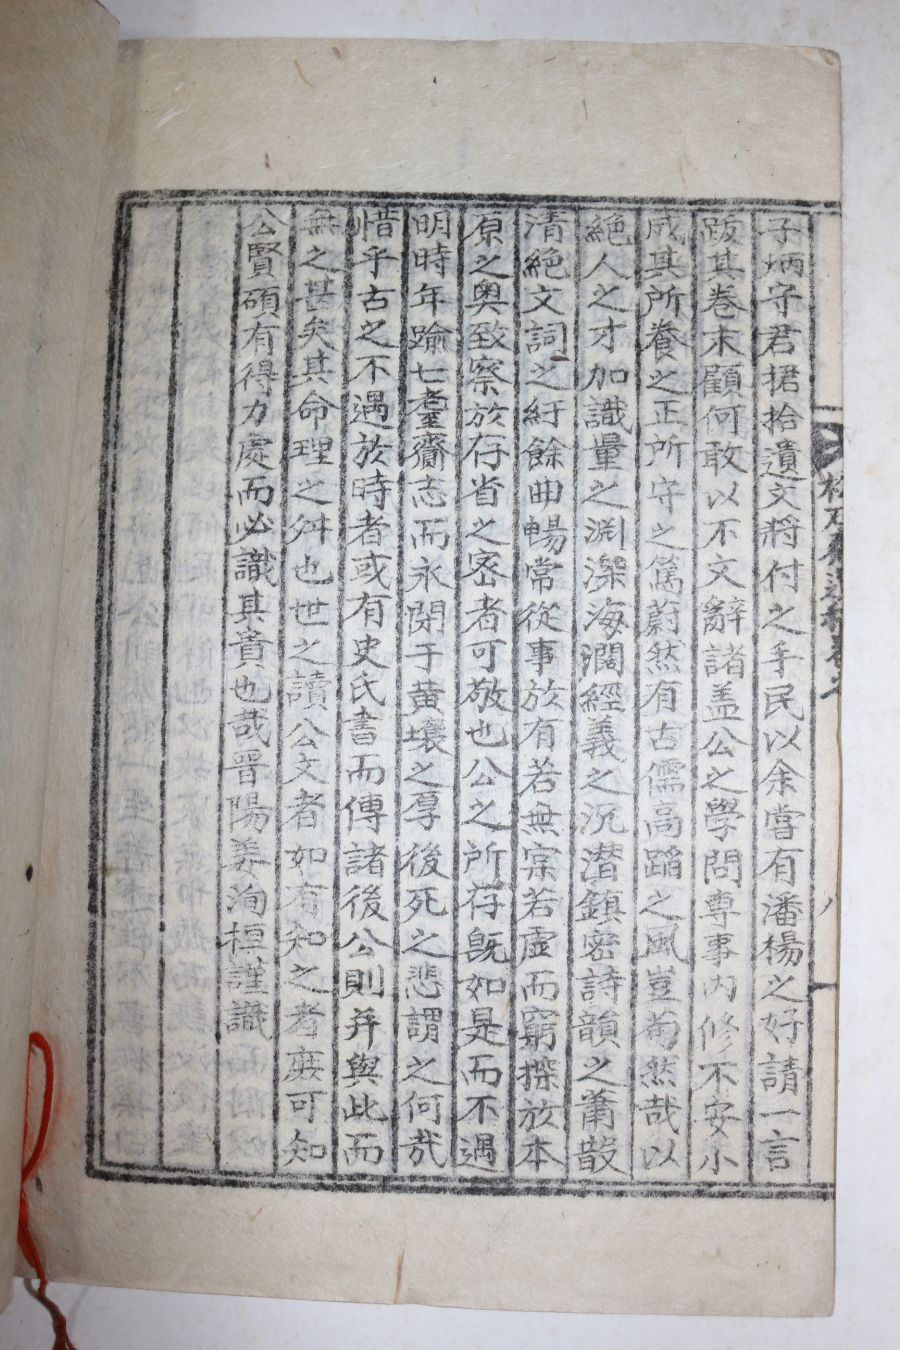 子炳守君捃拾遺文將付之手民以余嘗有潘楊之好請一言
跋其卷末顧何敢以不文辭諸盖公之學問專事內修不安小
成其所養之正所守之篤蔚然有古儒高蹈之風豈苟然哉以
絶人之才加識量之淵深海濶經義之沉潛鎮密詩韻之蕭散
清絶文詞之紆餘曲暢常從事於有若無實若虛而窮探於本
原之奥致察於存省之密者可敬也公之所存旣如是而不遇
明時年踰七耋齎志而永閉于黄壤之厚後死之悲謂之何哉
惜乎古之不遇於時者或有史氏書而傳諸後公則并與此而
無之甚矣其命理之舛也世之讀公文者如有知之者庶可知
公賢碩有得力處而必識其賁也哉晋陽姜洵桓謹識
八